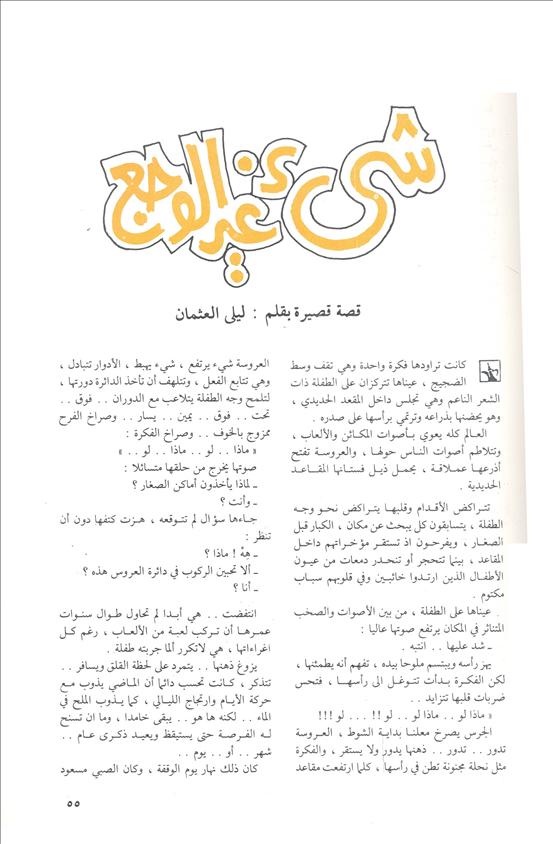 شيء غير الوجع
قصة قصيرة بقلم : ليلى العثمان
كانت تراودها فكرة واحدة وهي تقف وسط
الضجيج ، عيناها تتركزان على الطفلة ذات
الشعر الناعم وهي تجلس داخل المقعد الحديدي ،
وهو يحضنها بذراعه وترتمي برأسها على صدره .
العالم كله يعوي بأصوات المكائن والألعاب ،
وتتلاطم أصوات الناس حولها ، والعروسة تفتح
أذرعها عملاقة ، يحمل ذيل فستانها المقاعد
الحديدية .
تتراكض الأقدام وقلبها يتراكض نحو وجه
الطفلة ، يتسابقون كل يبحث عن مكان ، الكبار قبل
الصغار ، ويفرحون اذ تستقر مؤخراتهم داخل
المقاعد ، بينما تتحجر أو تنحدر دمعات من عيون
الأطفال الذين ارتدوا خائبين وفي قلوبهم سباب
مكتوم .
عيناها على الطفلة ، من بين الأصوات والصخب
المتناثر في المكان يرتفع صوتها عاليا :
ـ شد عليها . . انتبه .
يهز رأسه ويبتسم ملوحا بيده ، تفهم أنه يطمئنها ،
لكن الفكرة بدأت تتوغل الى رأسها ، فتحس
ضربات قلبها تتزايد . .
« ماذا لو . . ماذا لو . . لو !! . . . لو !!!
الجرس يصرخ معلنا بداية الشوط ، العروسة
تدور . . تدور . . ذهنها يدور ولا يستقر ، والفكرة
مثل نحلة مجنونة تطن في رأسها ، كلما ارتفعت مقاعد
العروسة شيء يرتفع ، شيء يهبط ، الأدوار تتبادل ،
وهي تتابع الفعل ، وتتلهف أن تأخذ الدائرة دورتها ،
لتلمح وجه الطفلة يتلاعب مع الدوران . . فوق . .
تحت . . فوق . . يمين . . يسار . . وصراخ الفرح
ممزوج بالخوف . . وصراخ الفكرة :
« ماذا . . لو . . ماذا . . لو . . »
صوتها يخرج من حلقها متسائلا :
ـ لماذا يأخذون أماكن الصغار ؟
ـ وأنت ؟
جاءها سؤال لم تتوقعه ، هزت كتفها دون أن
تنظر :
ـ هِهْ ! ماذا ؟
ـ ألا تحبين الركوب في دائرة العروس هذه ؟
ـ أنا ؟
انتفضت . . هي أبدا لم تحاول طوال سنوات
عمرها أن تركب لعبة من الألعاب ، رغم كل
اغراءاتها ، هي لاتكرر ألما جربته طفلة .
يزوغ ذهنها . . يتمرد على لحظة القلق ويسافر . .
تتذكر ، كانت تحسب دائما أن الماضي يذوب مع
حركة الأيام وارتجاج الليالي ، كما يذوب الملح في
الماء . . لكنه ها هو . . يبقى خامدا ، وما ان تسنح
له الفرصة حتى يستيقظ ويعيد ذكرى عام . .
شهر . . أو . . يوم . .
كان ذلك نهار يوم الوقفة ، وكان الصبي مسعود
٥٥